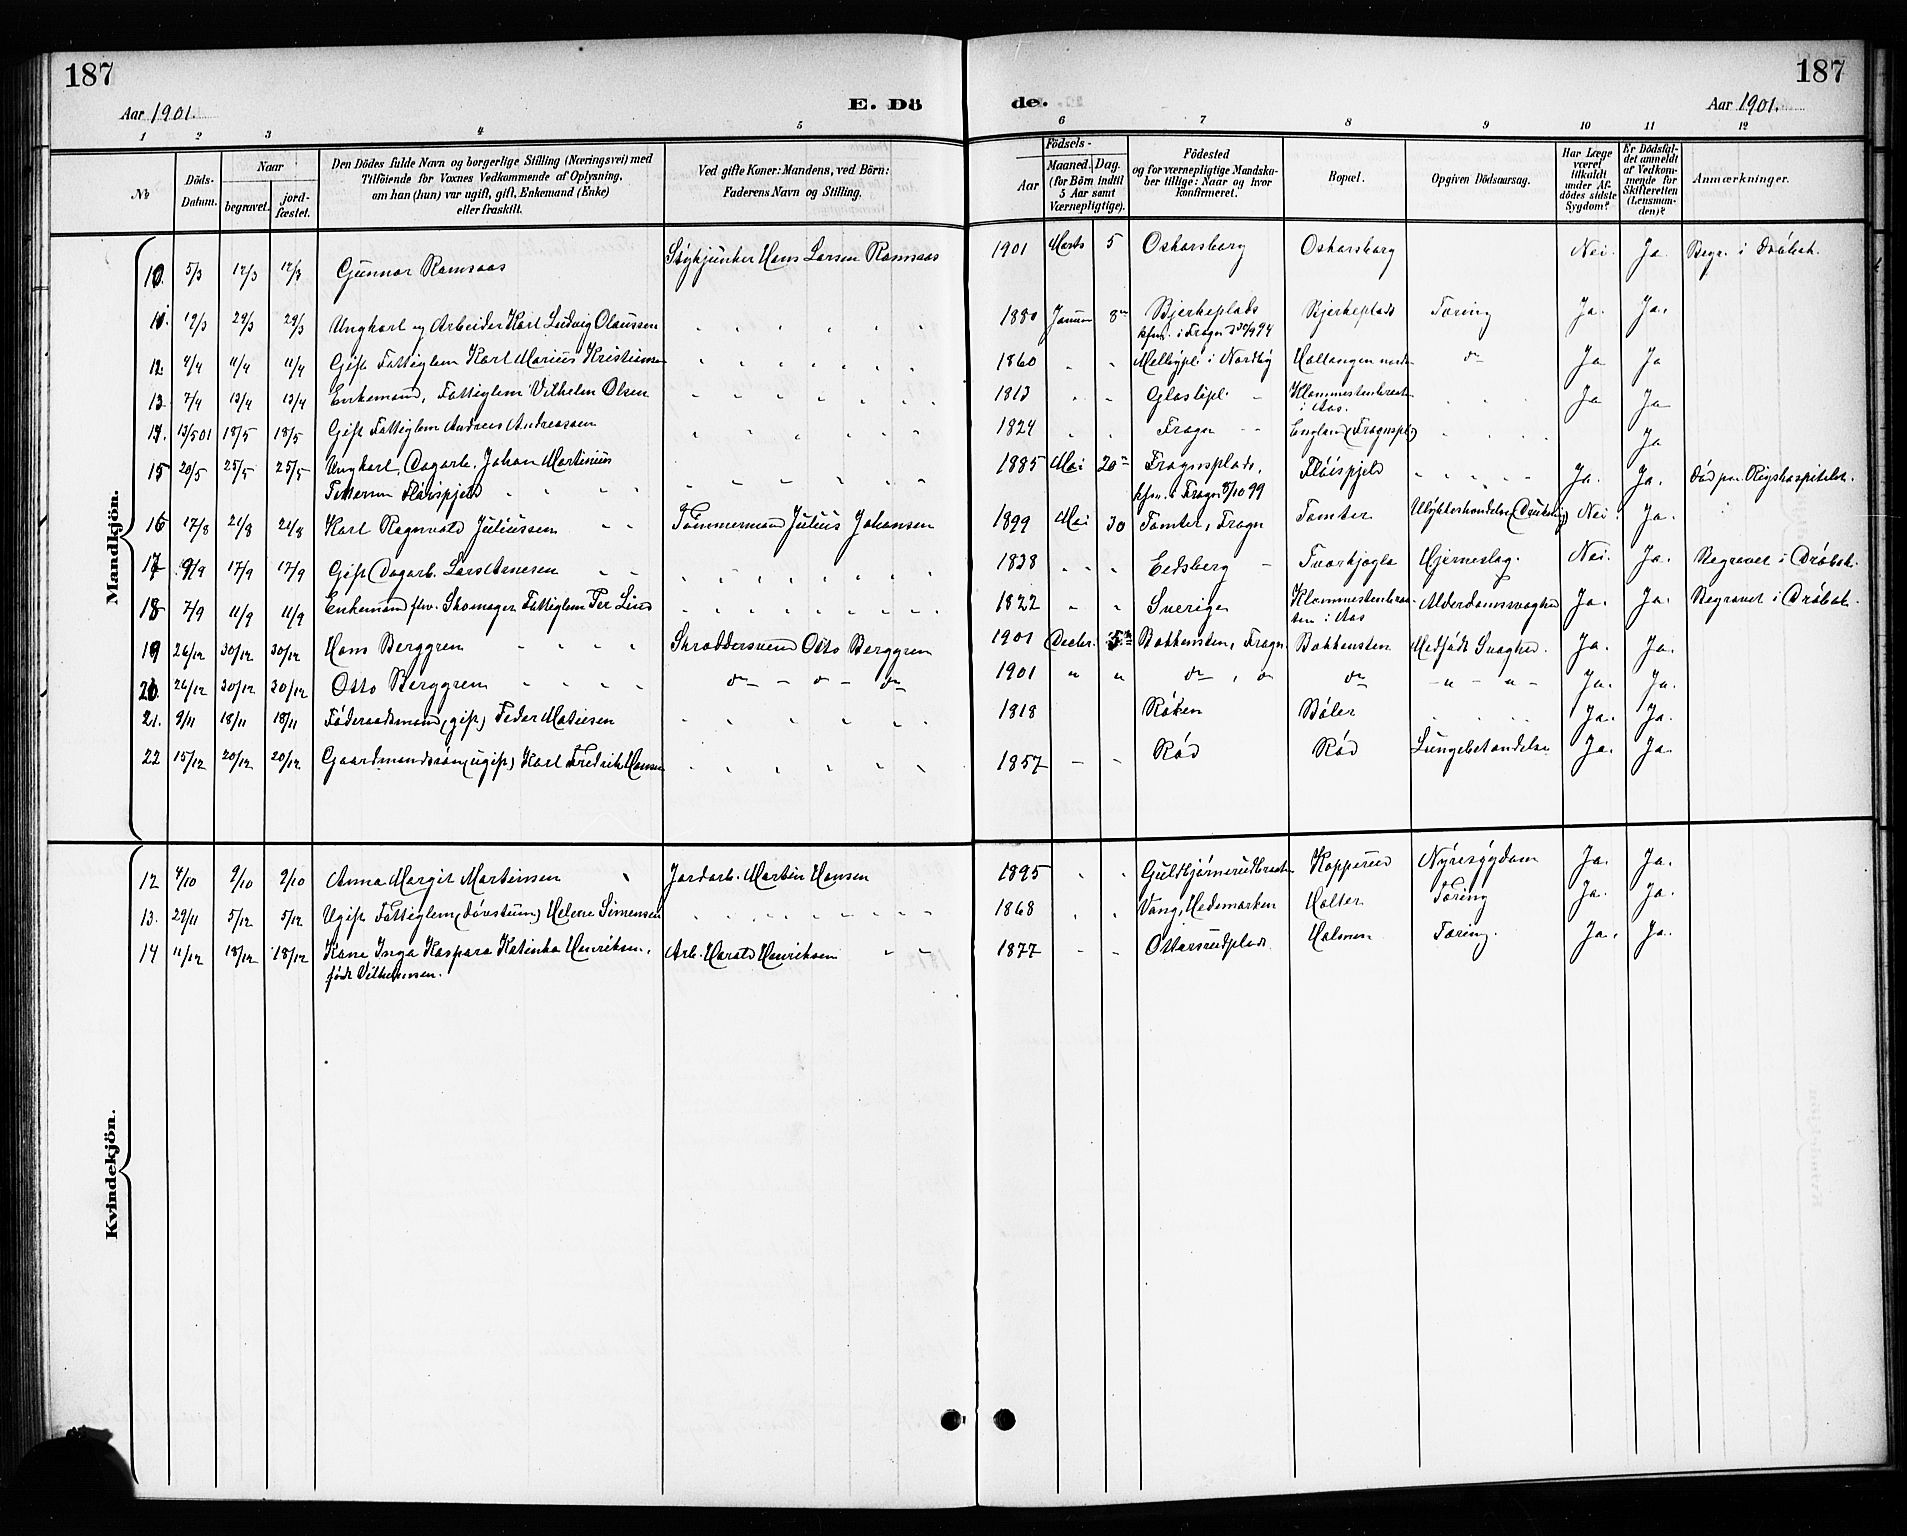 187
187
Aar 1901.
E. Dö
de.
Aar 1901.
1 2 3 4 5 6 7 8 9 10 11 12
No
Döds-Datum.
Naar
begravet.
jord-fæstet.
Den Dödes fulde Navn og borgerlige Stilling (Næringsvei) med
Tilföiende for Voxnes Vedkommende af Oplysning,
om han (hun) var ugift, gift, Enkemand (Enke)
eller fraskilt.
Ved gifte Koner: Mandens, ved Börn:
Faderens Navn og Stilling.
Födsels-
Aar
Maaned. Dag.
(for Börn indtil
5 Aar samt
Værnepligtige).
Födested
og for værnepligtige Mandska-
ber tillige: Naar og hvor
konfirmeret.
Bopæl.
Opgiven Dödsaarsag.
Har Læge
været
tilkaldt
under Af-
dödes sidste
Sygdom?
Er Dödsfal-
det anmeldt
af Vedkom-
mende for
Skifteretten
(Lensman-
den)?
Anmærkninger.
Mandkjön.
10. 5/3 12/3 12/3 Gunnar Ramsaas Hans Larsen Ramsaas 1901 Marts 5 Oskarsborg Oskarsborg Nei. Ja. Begr. i Dröbak.
11. 19/3 29/3 29/3 Ungkarl og Arbeider Karl Ludvig Olaussen 1880 Januar 8de Bjerkeplads Bjerkeplads Tæring Ja. Ja.
kfm. i Frogn
12. 4/4 11/4 11/4 Gift Fattiglem Karl Marius Kristiansen 1860 Melbypl. i Nordby do Ja Ja
13. 7/4 13/4 13/4 Enkemand, Fattiglem Vilhelm Olsen 1813 Ja Ja
i Aas.
14. 13/5 01 18/5 18/5 Gift Fattiglem Andreas Andreassen 1824 Frogn England (Frognspl.) Ja
15 20/5 25/5 25/5 Ungkarl, Dagarb. Johan Martinius 1885 Mai 20de Frognsplads, Flöispjeld Ja. Ja. Död paa Rigshospitalet.
Pettersen Flöispjeld kfm. i Frogn 8/10 99
16 17/8 21/8 21/8 Karl Ragnvald Juliussen Tömmermand Julius Johansen 1899 Mai 30 Tomter, Frogn Tomter Ulykkeshændelse (Drukning) Nei Ja.
17 9/9 17/9 17/9 Gift Dagarb. Lars Arnesen 1838 Eidsberg Hjerneslag. Nei. Ja. Begravet i Dröbak.
18 7/9 11/9 11/9 Enkemand fhv. Skomager Fattiglem Per Lind 1822 Sverige Alderdomssvaghed Ja. Ja. Begravet i Dröbak.
i Aas
19 26/12 30/12 30/12 Hans Berggren Skræddersvend Otto Berggren 1901 Decbr. Bakkensten, Frogn Bakkensten Medfödt Svaghed. Ja. Ja.
20 26/12 30/12 30/12 Otto Berggren do - do - do 1901 " " do, do do - " - " - Ja. Ja.
21. 9/11 18/11 18/11 Föderaadsmand (gift) Peder Matiesen 1818 Röken Böler Ja. Ja.
22 15/12 20/12 20/12 Gaardmandssön (ugift) Karl Fredrik Hansen 1857 Röd Röd Lungebetændelse Ja. Ja.
Kvindekjön.
12 4/10 9/10 9/10 Anna Margit Martinsen Jordarb. Martin Hansen 1895 Guldbjørnerudbraaten Kopperud Nyresygdom Ja. Ja.
13. 29/11 5/12 5/12 Ugift Fattiglem (dövstum) Helene Simensen 1868 Vang, Hedemarken Holter Tæring Ja. Ja.
14 11/12 18/12 18/12 Kone Inga Kaspara Katinka Henriksen, Arb. Harald Henriksen 1877 Ottarsrudplads Holmen Tæring. Ja. Ja.
födt Vilhelmsen.